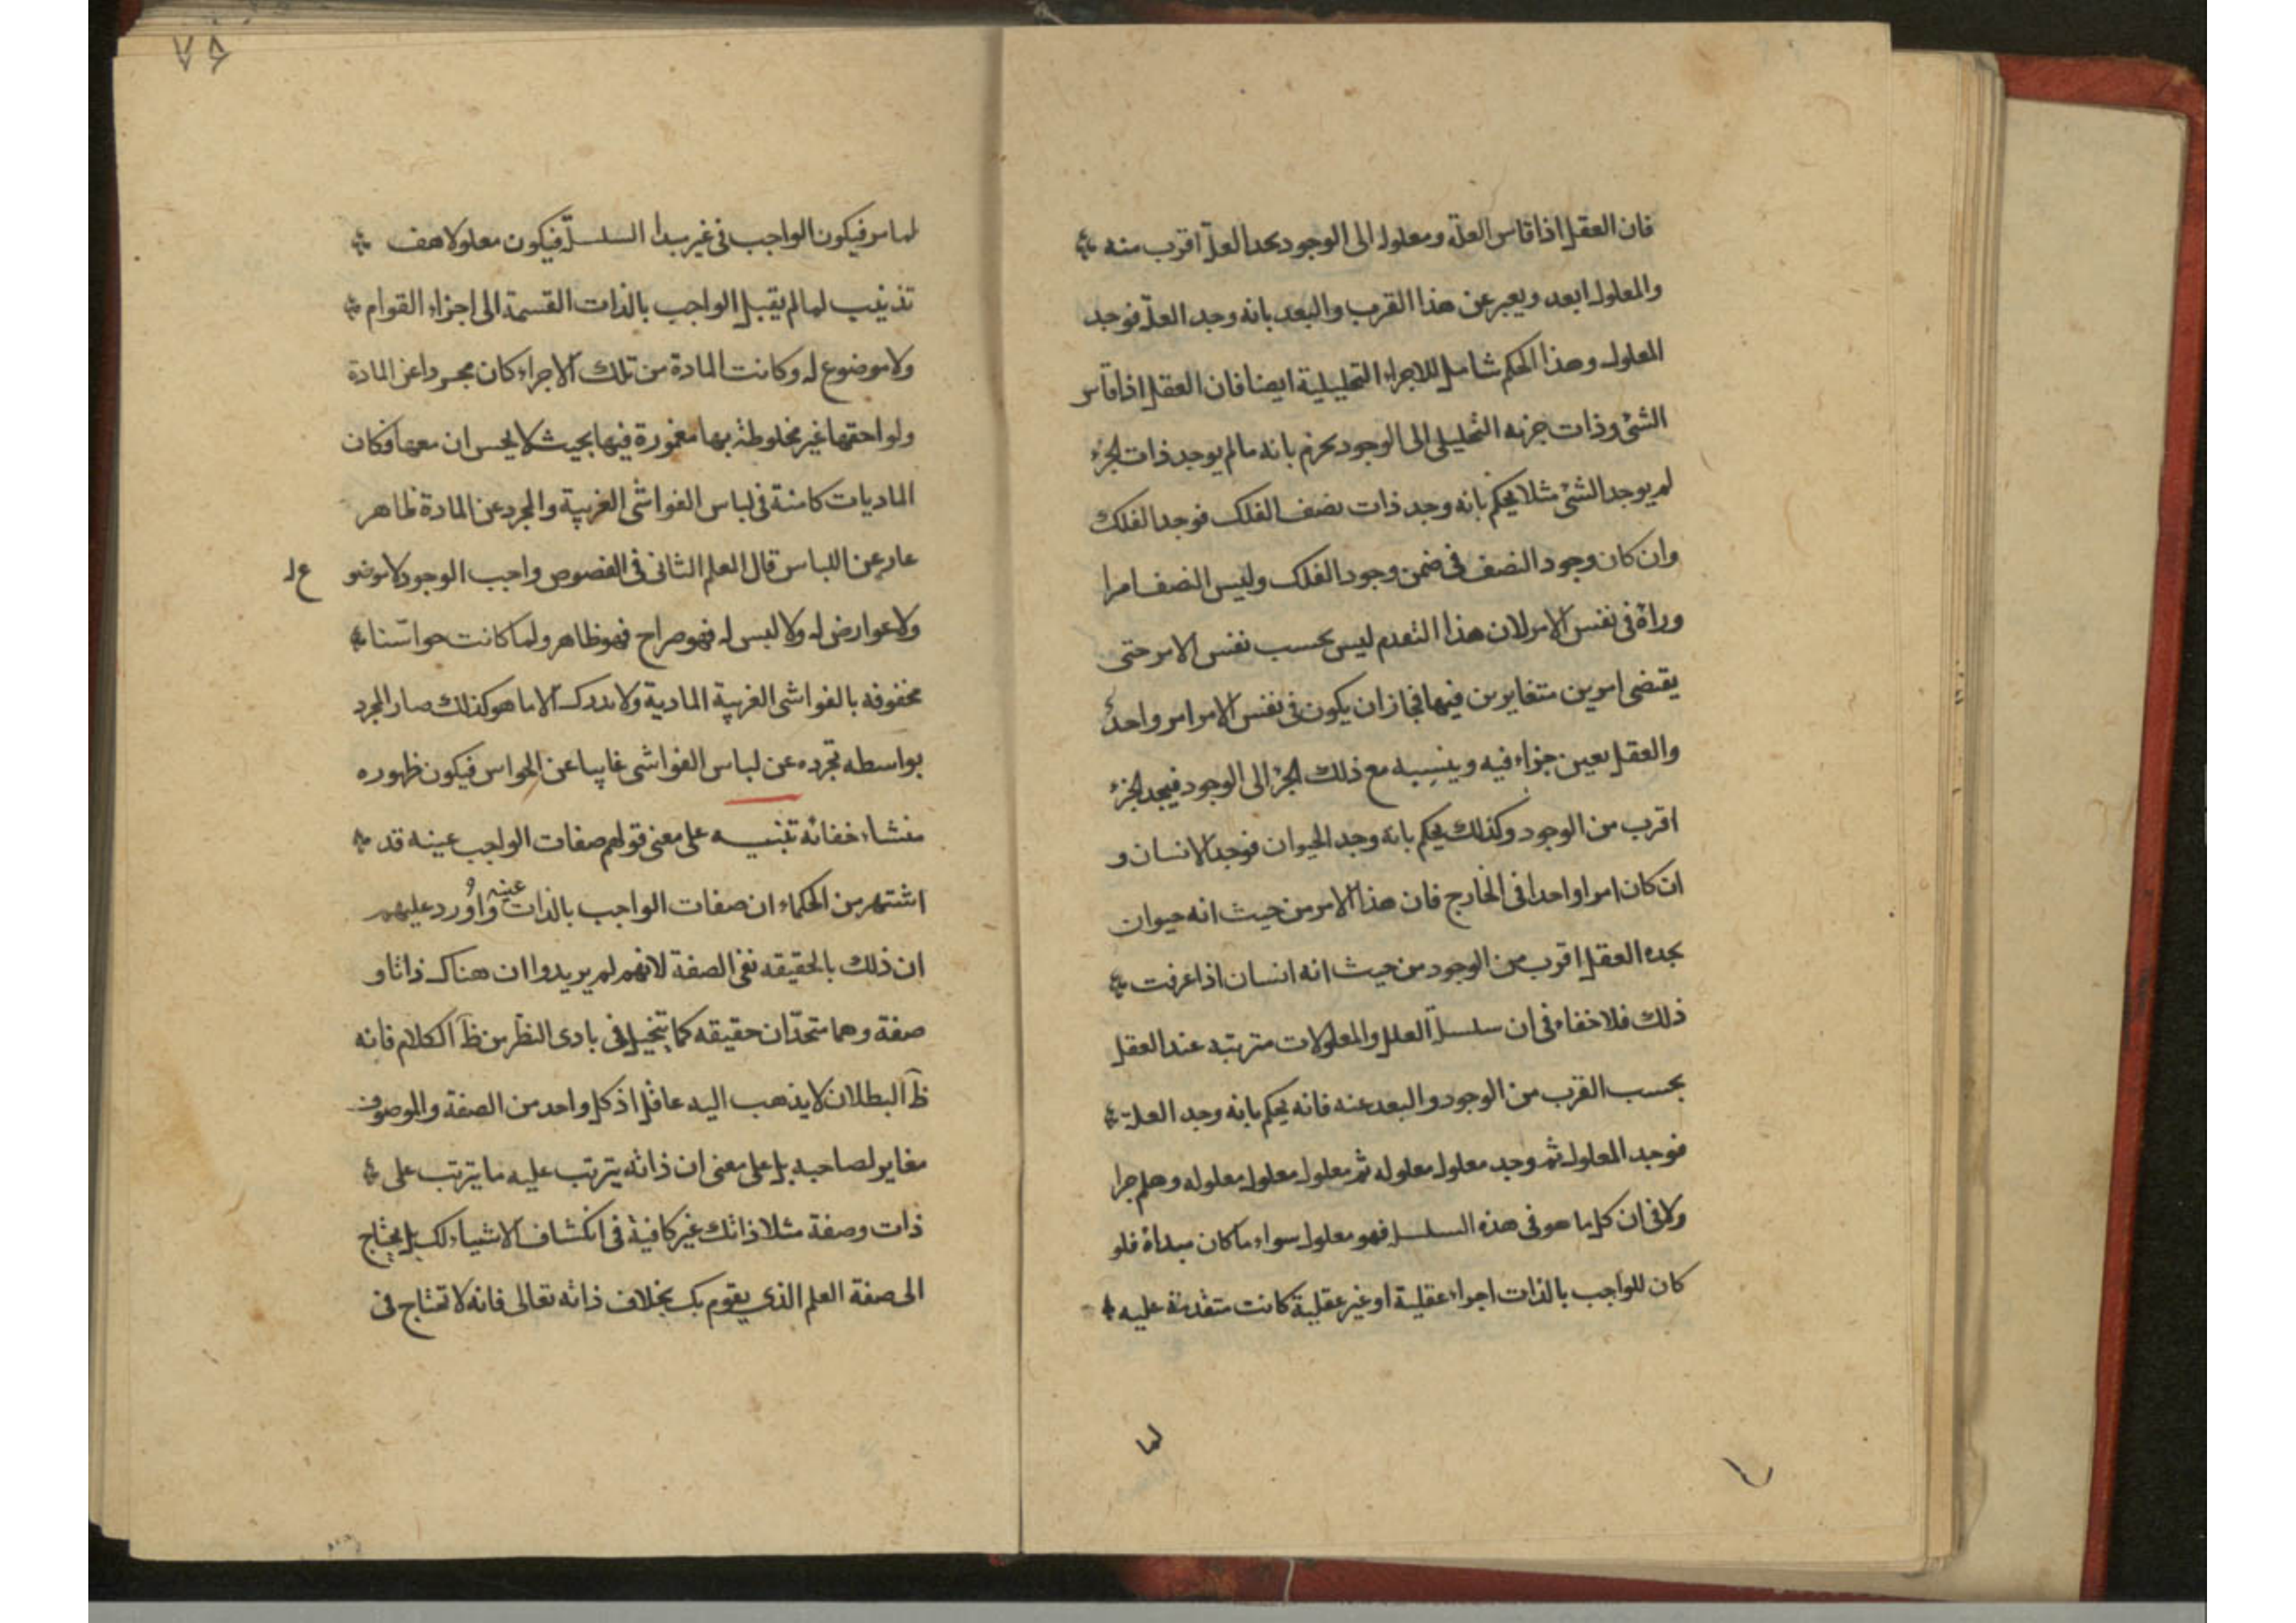 فان العقل اذا قاس العلة ومعلوله الى الوجود يجد العلة اقرب منه
والمعلول ابعد ويعبر عن هذا القرب والبعد بانه وجد العلة فوجد
المعلول وهذا الحكم شامل للاجزاء التحليلية ايضا فان العقل اذا قاس
الشئ وذات جزئه التحليلى الى الوجود يجزم بانه ما لم يوجد ذات الجزء
لم يوجد الشئ مثلا يحكم بانه وجد ذات نصف الفلك فوجد الفلك
وان كان وجود النصف فى ضمن وجود الفلك وليس النصف امرا
وراءه فى نفس الامر لان هذا التقدم ليس بحسب نفس الامر حتى
يقتضى امرين متغايرين فيها فجاز ان يكون فى نفس الامر امر واحد
والعقل يعين جزاء فيه وينسبه مع ذلك الجزء الى الوجود فيجد الجزء
اقرب من الوجود وكذلك يحكم بانه وجد الحيوان فوجد الانسان و
ان كان امرا واحدا فى الخارج فان هذا الامر من حيث انه حيوان
يجده العقل اقرب من الوجود من حيث انه انسان اذا عرفت
ذلك فلا خفاء فى ان سلسلة العلل والمعلولات مترتبه عند العقل
بحسب القرب من الوجود والبعد عنه فانه يحكم بانه وجد العلة
فوجد المعلول ثم وجد معلول معلوله ثم معلول معلول معلوله وهلم جرا
ولا فى ان كل ما هو فى هذه السلسلـ فهو معلول سواء ما كان مبداه فلو
كان للواجب بالذات اجزاء عقلية او غير عقلية كانت متقدمة عليه
لما
لما مر فيكون الواجب فى غير مبدا السلسلة فيكون معلولا هف
تذنيب لما لم يقبل الواجب بالذات القسمة الى اجزاء القوام
ولا موضوع له وكانت المادة من تلك الاجزاء كان مجردا عن المادة
ولواحقها غير مخلوطة بها مغمورة فيها بحيث لا يحس ان معها فكان
الماديات كامنة فى لباس الغواشى الغريبة والمجرد عن المادة ظاهر
عار عن اللباس قال المعلم الثانى فى الفصوص واجب الوجود لا موضو ع له
ولا عوارض له ولا لبس له فهو صراح فهو ظاهر ولما كانت حواسنا
محفوفه بالغواشى الغريبة المادية ولا تدرك الا ما هو كذلك صار المجرد
بواسطه تجرده عن لباس الغواشى غايبا عن الحواس فيكون ظهوره
منشاء خفائه تنبيه على معنى قولهم صفات الواجب عينه قد
اشتهر من الحكماء ان صفات الواجب بالذات عينه واورد عليهم
ان ذلك بالحقيقه نفى الصفة لانهم لم يريدوا ان هناك ذاتا و
صفة وهما متحدان حقيقه كما يتخيل فى بادى النظر من ظ الكلام فانه
ظ البطلان لا يذهب اليه عاقل اذ كل واحد من الصفة والموصوف
مغاير لصاحبه بل على معنى ان ذاته يترتب عليه ما يترتب على
ذات وصفة مثلا ذاتك غير كافية فى انكشاف الاشياء لك بل يحتاج
الى صفة العلم الذى يقوم بك بخلاف ذاته تعالى فانه لا تحتاج فى